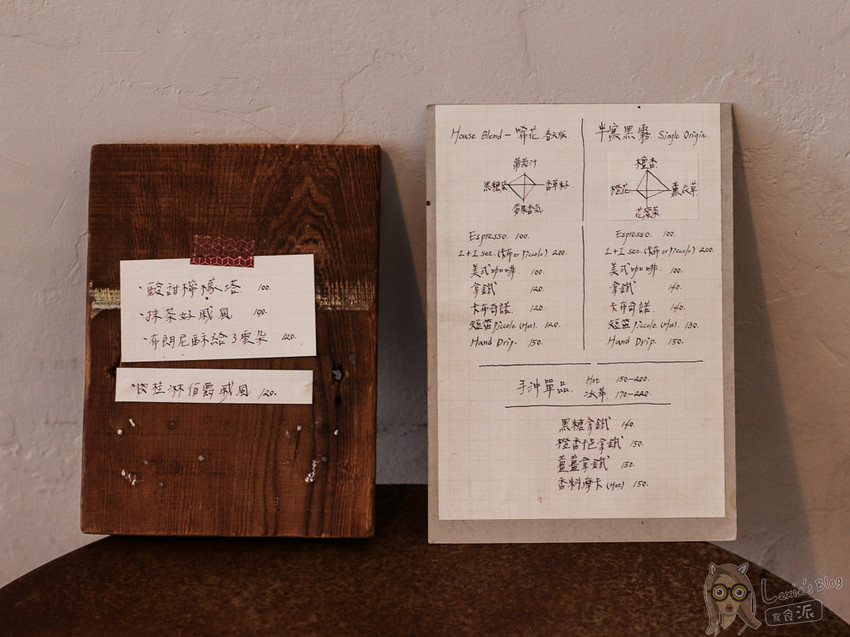 ·酸甜檸檬塔 100.
·抹茶好戚風 100.
·布朗尼酥給3雲朵 120.
淋伯爵戚風 120.
House Blend - 啼花 春天版
葡萄汁
黑糖
香草籽
Espresso 100.
1+1 set. (卡布 or Piccolo) 200.
美式咖啡 100.
拿鐵 120.
卡布奇諾 120.
短笛 Piccolo (Hot). 120.
Hand Drip. 150.
半寓黑霧 Single Origin
檀香
橙花
薰衣草
花蜜
Espresso. 100.
1+1 set. (卡布 or Piccolo) 200.
美式咖啡 100.
拿鐵 140.
卡布奇諾. 140.
短笛 Piccolo (Hot). 130.
Hand Drip. 150.
手沖單品. Hot 150-200.
冰華 170-220.
黑糖拿鐵 140.
橙香十色拿鐵 150.
薑薑拿鐵 150.
香料摩卡 (Hot) 150.
Lexie's Blog
食派